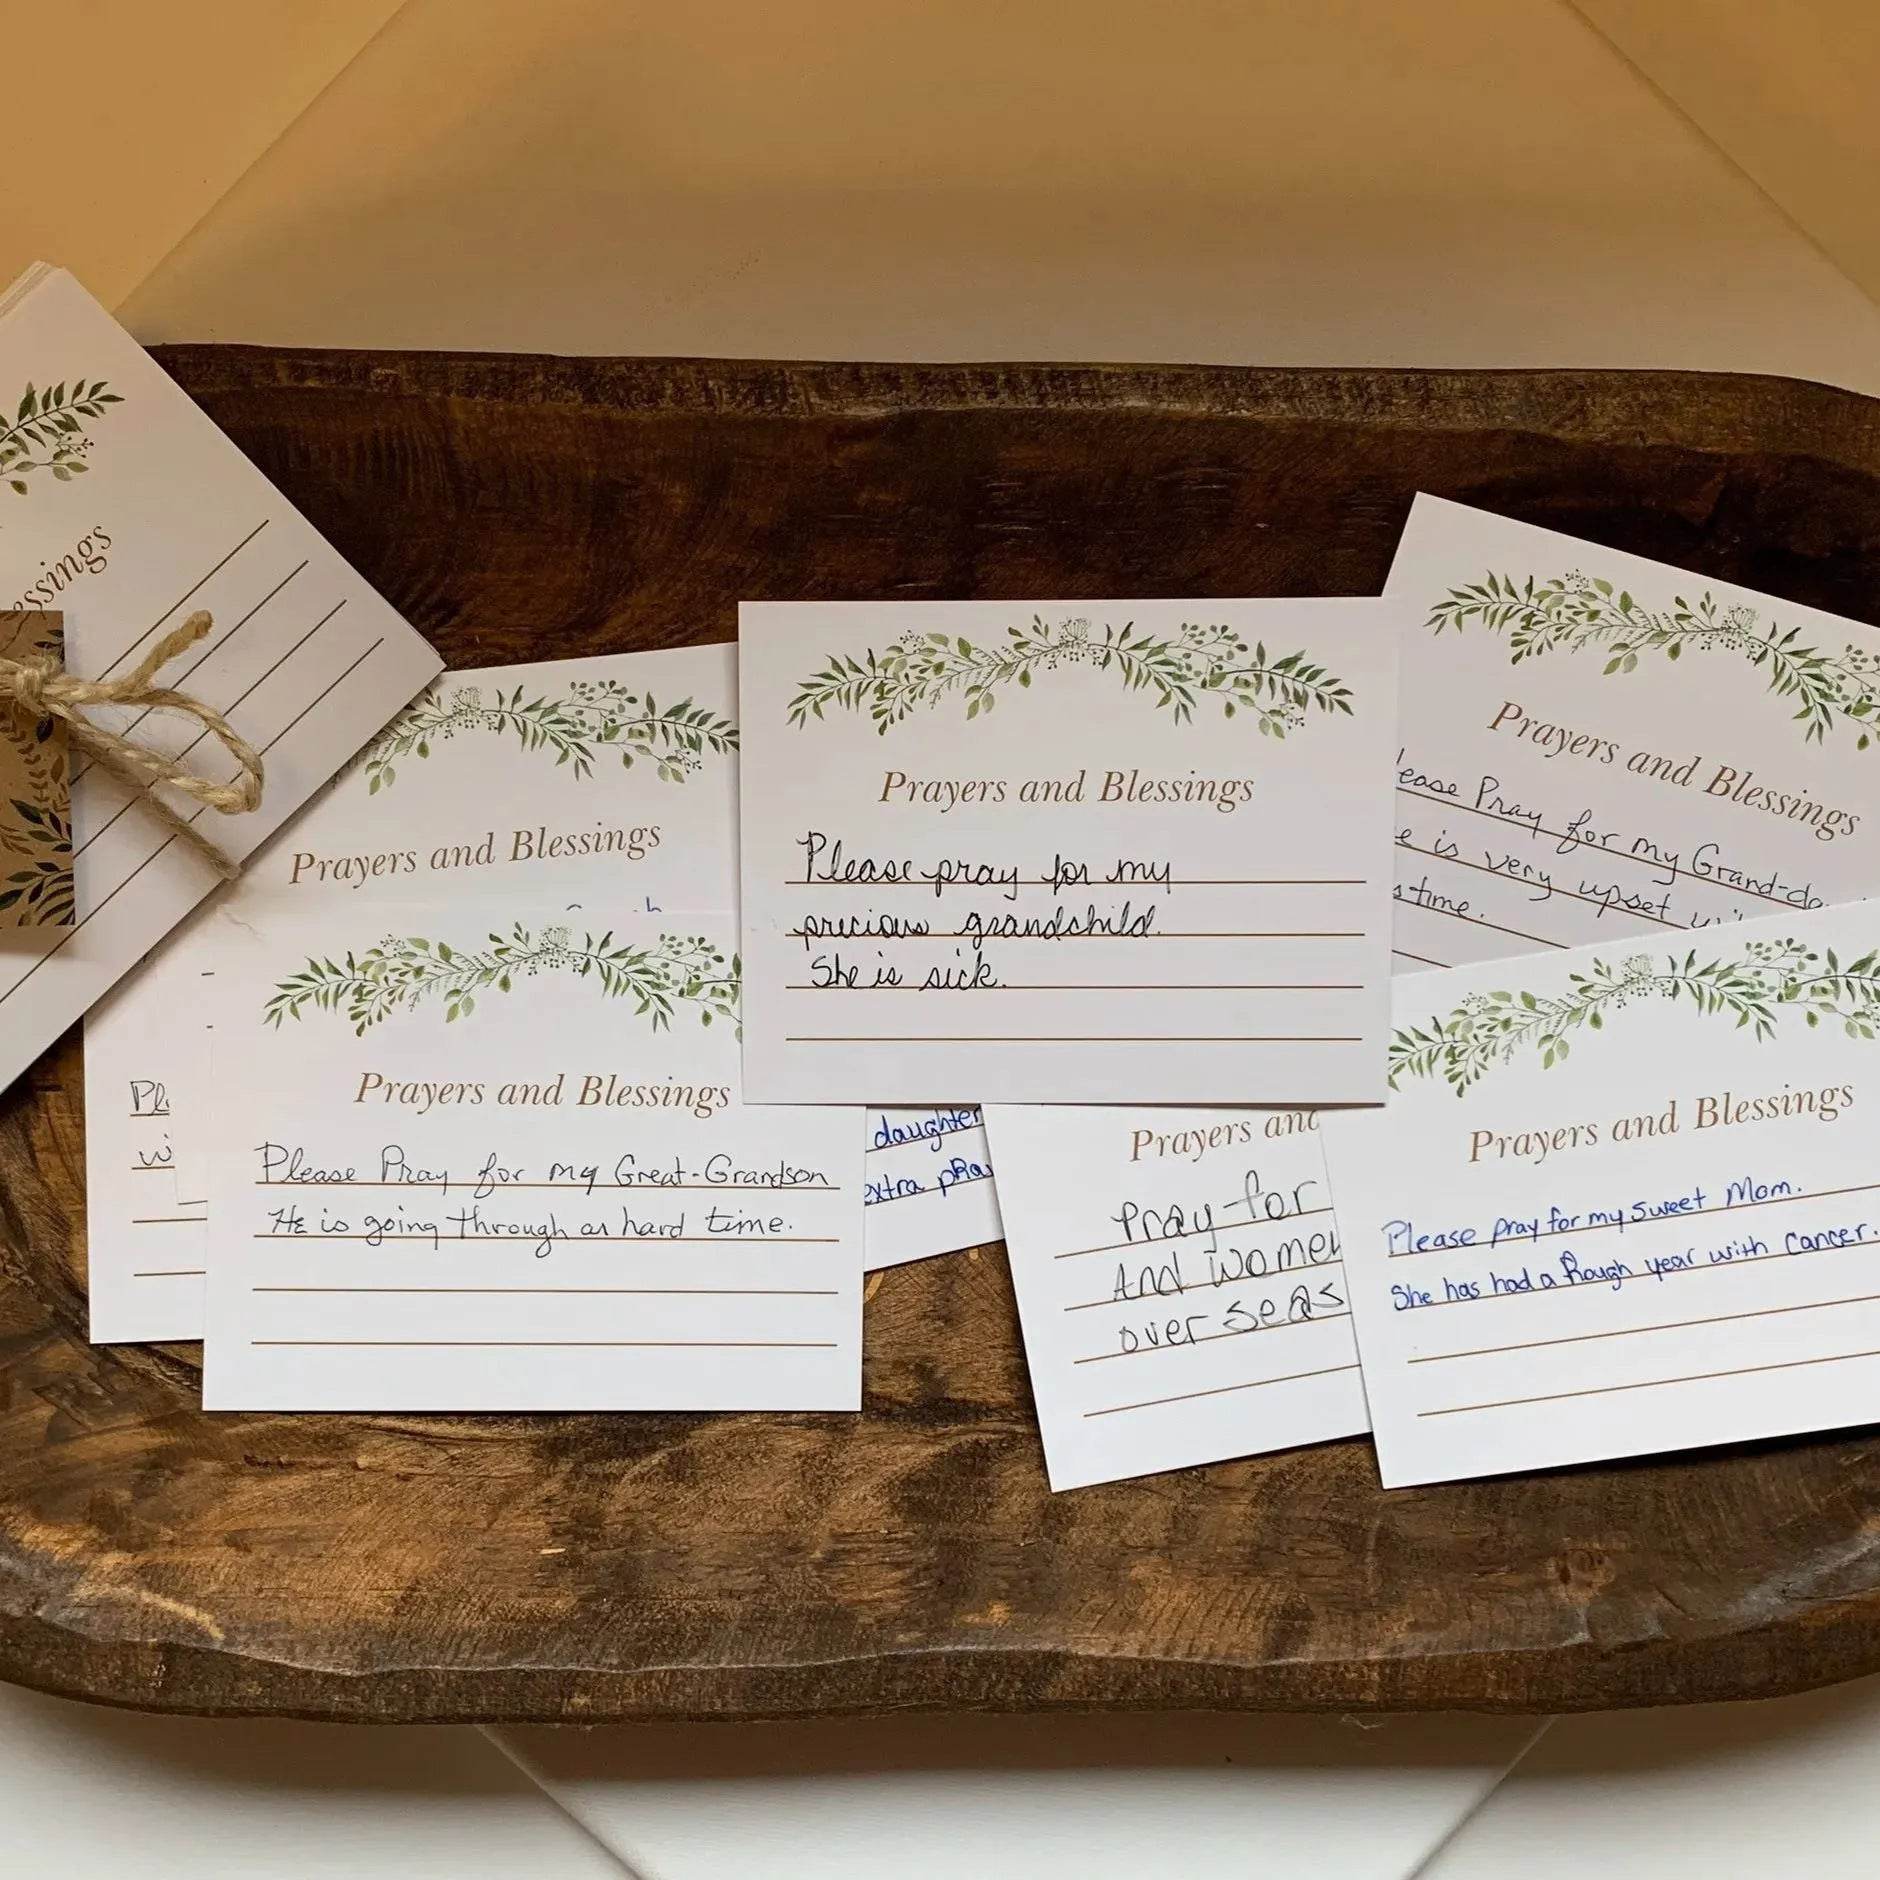 Prayers and Blessings
Please pray for my
precious grandchild.
She is sick.
Prayers and Blessings
Prayers and Blessings
Please Pray for my Great-Grandson
He is going through a hard time.
daughter
extra
Prayers and Blessings
Pray for my
is very upset
time.
Prayers
Pray for
And women
over seas
Prayers and Blessings
Please pray for my sweet Mom.
She has had a Rough year with cancer.